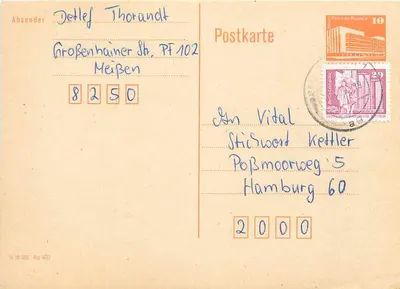 Absender
Detlef Thorandt
Großenhainer Str. PF 102
Meißen
8250
Postkarte
10
An Vital
Stichwort Kettler
Poßmoorweg 5
Hamburg 60
2000